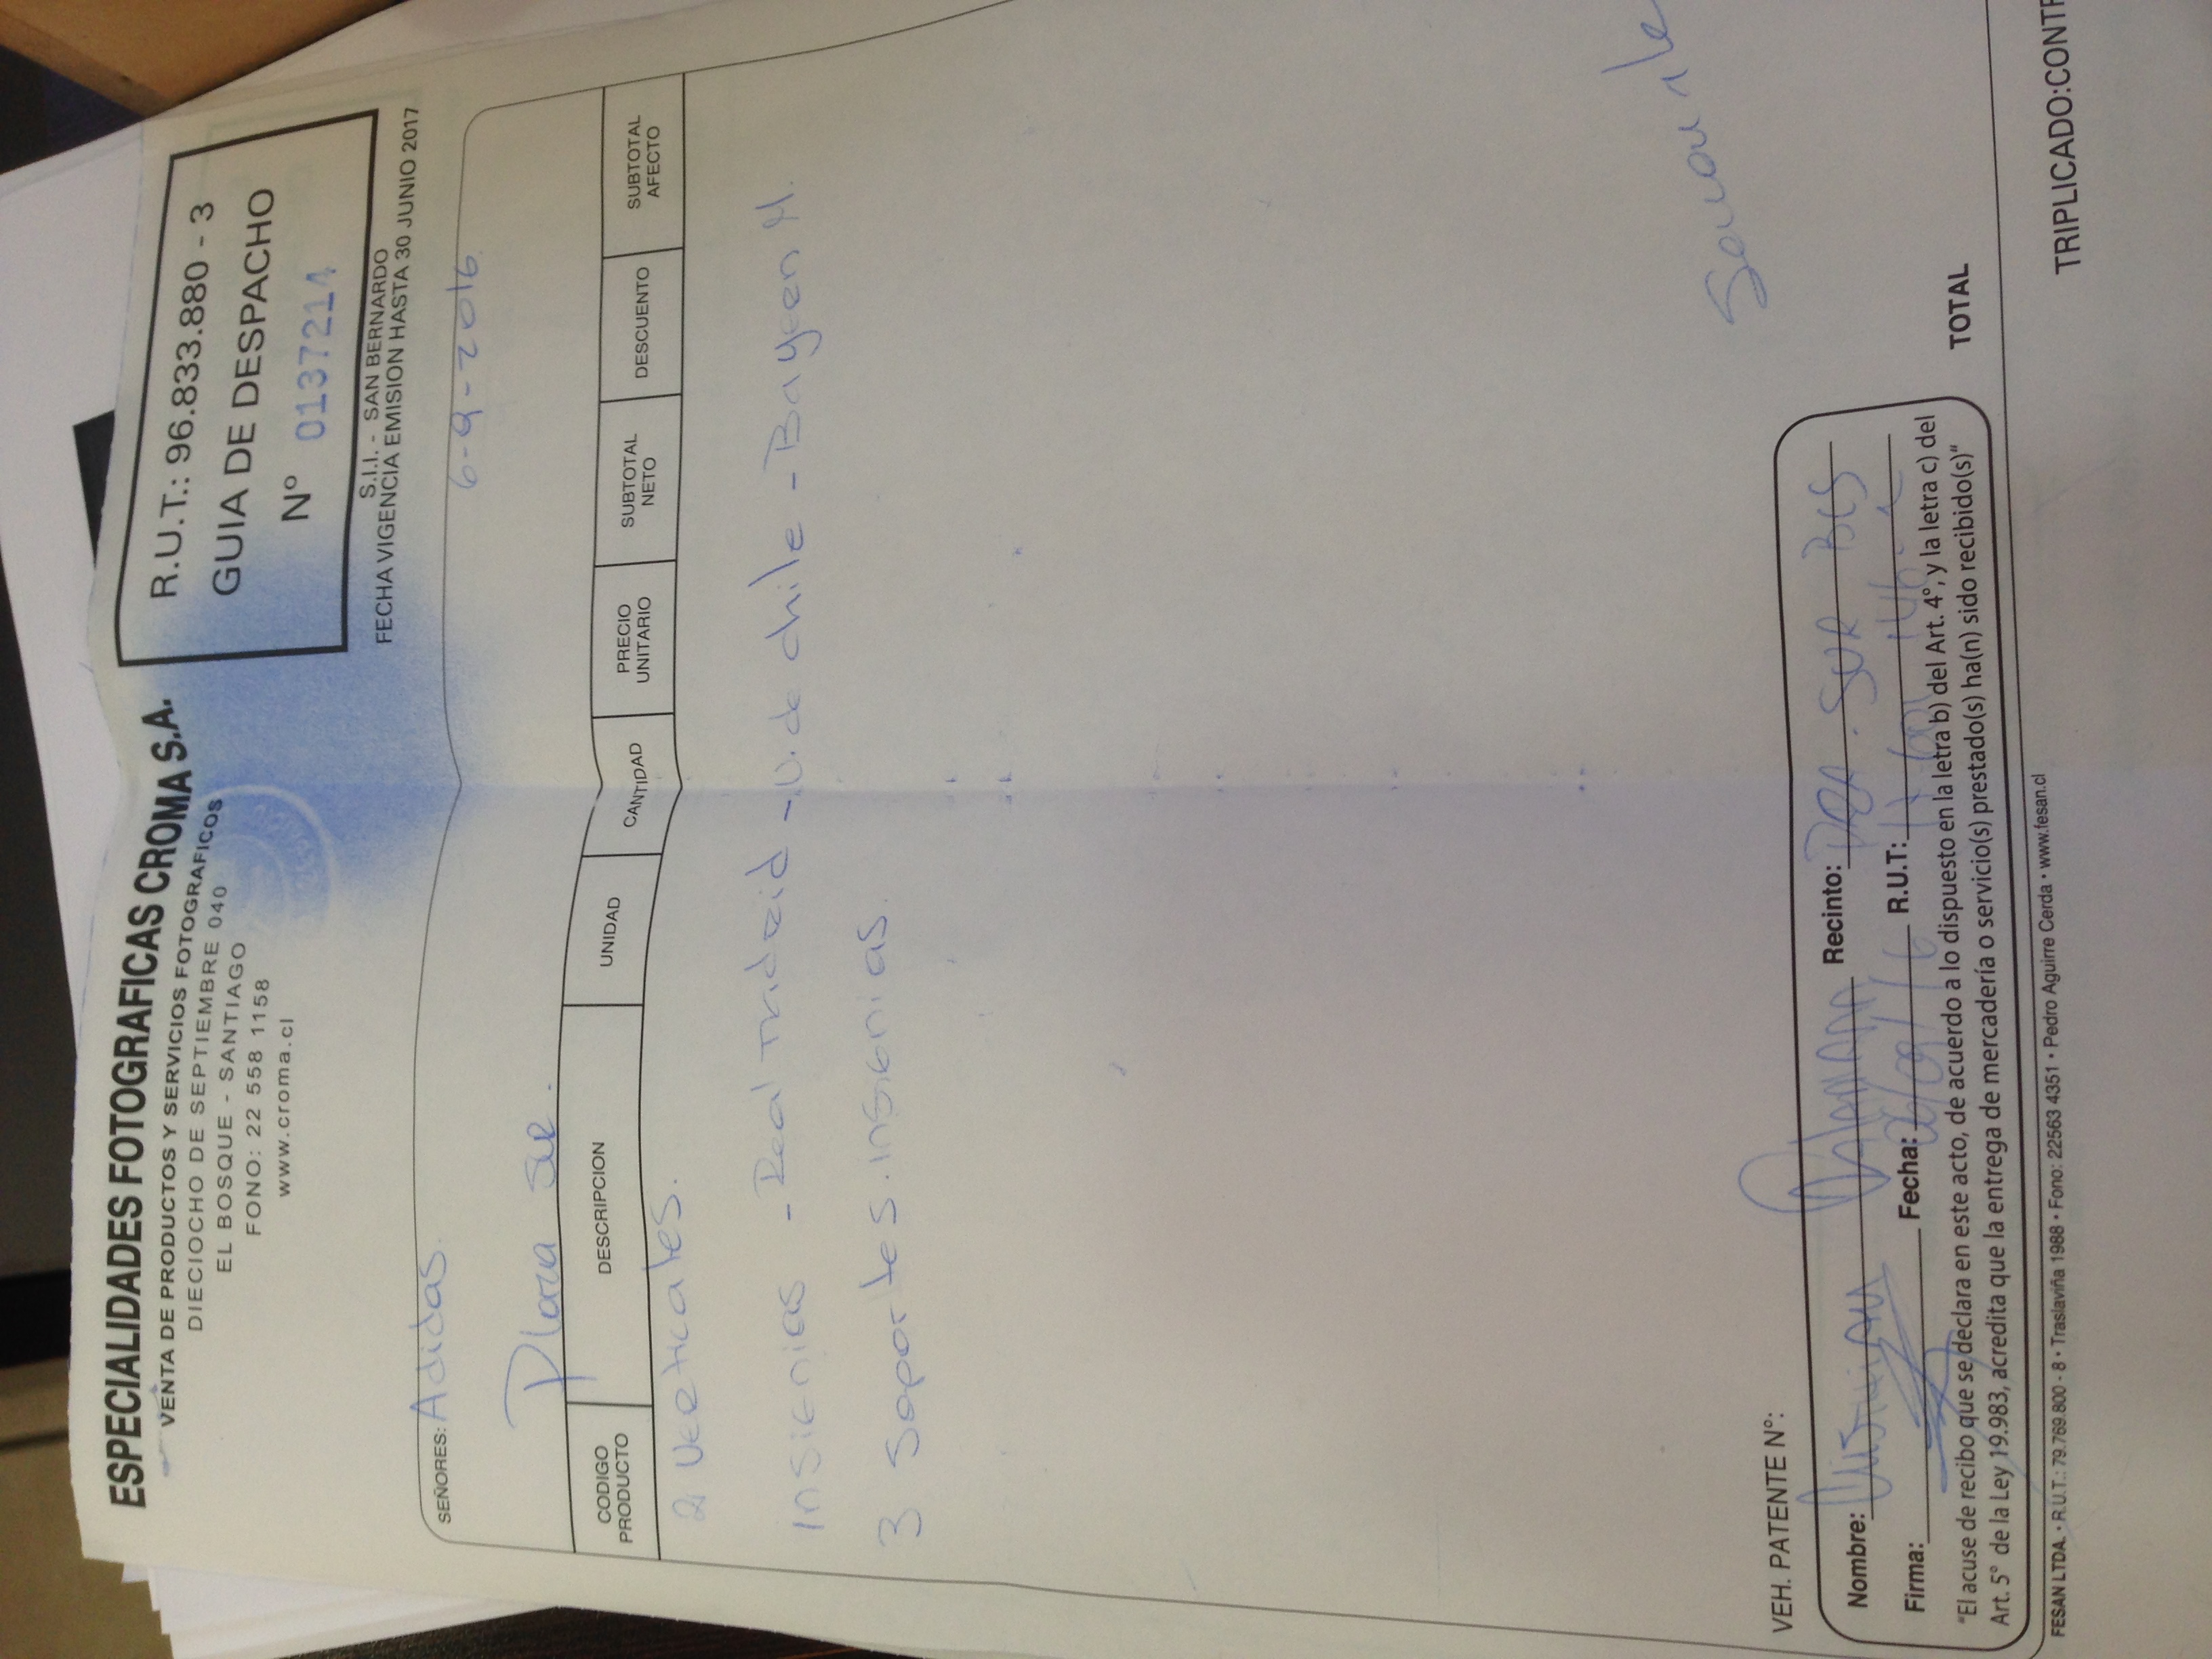 ESPECIALIDADES FOTOGRAFICAS CROMA S.A.
VENTA DE PRODUCTOS Y SERVICIOS FOTOGRAFICOS
DIECIOCHO DE SEPTIEMBRE 040
EL BOSQUE - SANTIAGO
FONO: 22 558 1158
www.croma.cl
R.U.T.: 96.833.880 - 3
GUIA DE DESPACHO
N° 0137214
S.I.I. - SAN BERNARDO
FECHA VIGENCIA EMISION HASTA 30 JUNIO 2017
SEÑORES: Adidas.
6-9-2016
Plaza sur.
CODIGO PRODUCTO DESCRIPCION UNIDAD CANTIDAD PRECIO UNITARIO SUBTOTAL NETO DESCUENTO SUBTOTAL AFECTO
2 Verticales.
Insignias - Real Madrid - U. de chile - Bayern M.
3 Soportes. insignias.
VEH. PATENTE N°:
Nombre: Cristian Recinto: SUR
Firma: Fecha: 06/09/16 R.U.T:
"El acuse de recibo que se declara en este acto, de acuerdo a lo dispuesto en la letra b) del Art. 4°, y la letra c) del
Art. 5° de la Ley 19.983, acredita que la entrega de mercadería o servicio(s) prestado(s) ha(n) sido recibido(s)"
TOTAL
FESAN LTDA. • R.U.T.: 79.769.800 - 8 • Traslaviña 1988 • Fono: 22563 4351 • Pedro Aguirre Cerda • www.fesan.cl
TRIPLICADO:CONTR